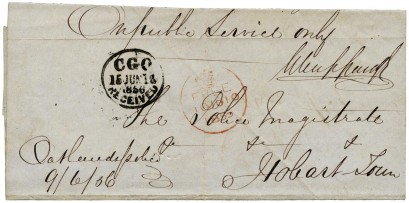 On public Service only
CGO
15 JUN 1856
RECEIVED
The Police Magistrate
Oatlands police
9/6/56
Hobart Town